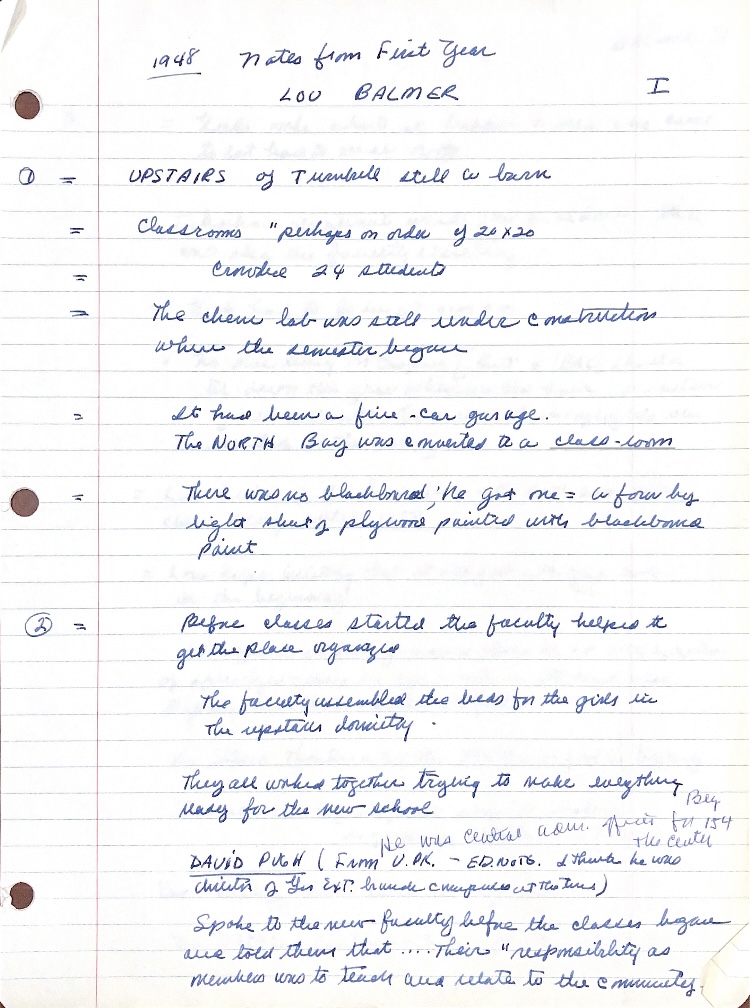 1948 Notes from First Year
LOU BALMER I
① = UPSTAIRS of Turnbull still a barn
= Classrooms "perhaps on order of 20x20
= Crowded 24 students
= The chem lab was still under construction
when the semester began
= It had been a five-car garage.
The NORTH Bay was converted to a class-room
= There was no blackboard; he got one = a four by
eight sheet of plywood painted with blackboard
paint
② = Before classes started the faculty helped to
get the place organized
The faculty assembled the beds for the girls in
the upstairs dormitory.
They all worked together trying to make everything
ready for the new school
He was central adm. officer for
the center
DAVID PUGH (From U.PK. - ED NOTE. I think he was
director of Gen Ext. branch campuses at the time)
Spoke to the new faculty before the classes began
and told them that .... Their "responsibility as
members was to teach and relate to the community.